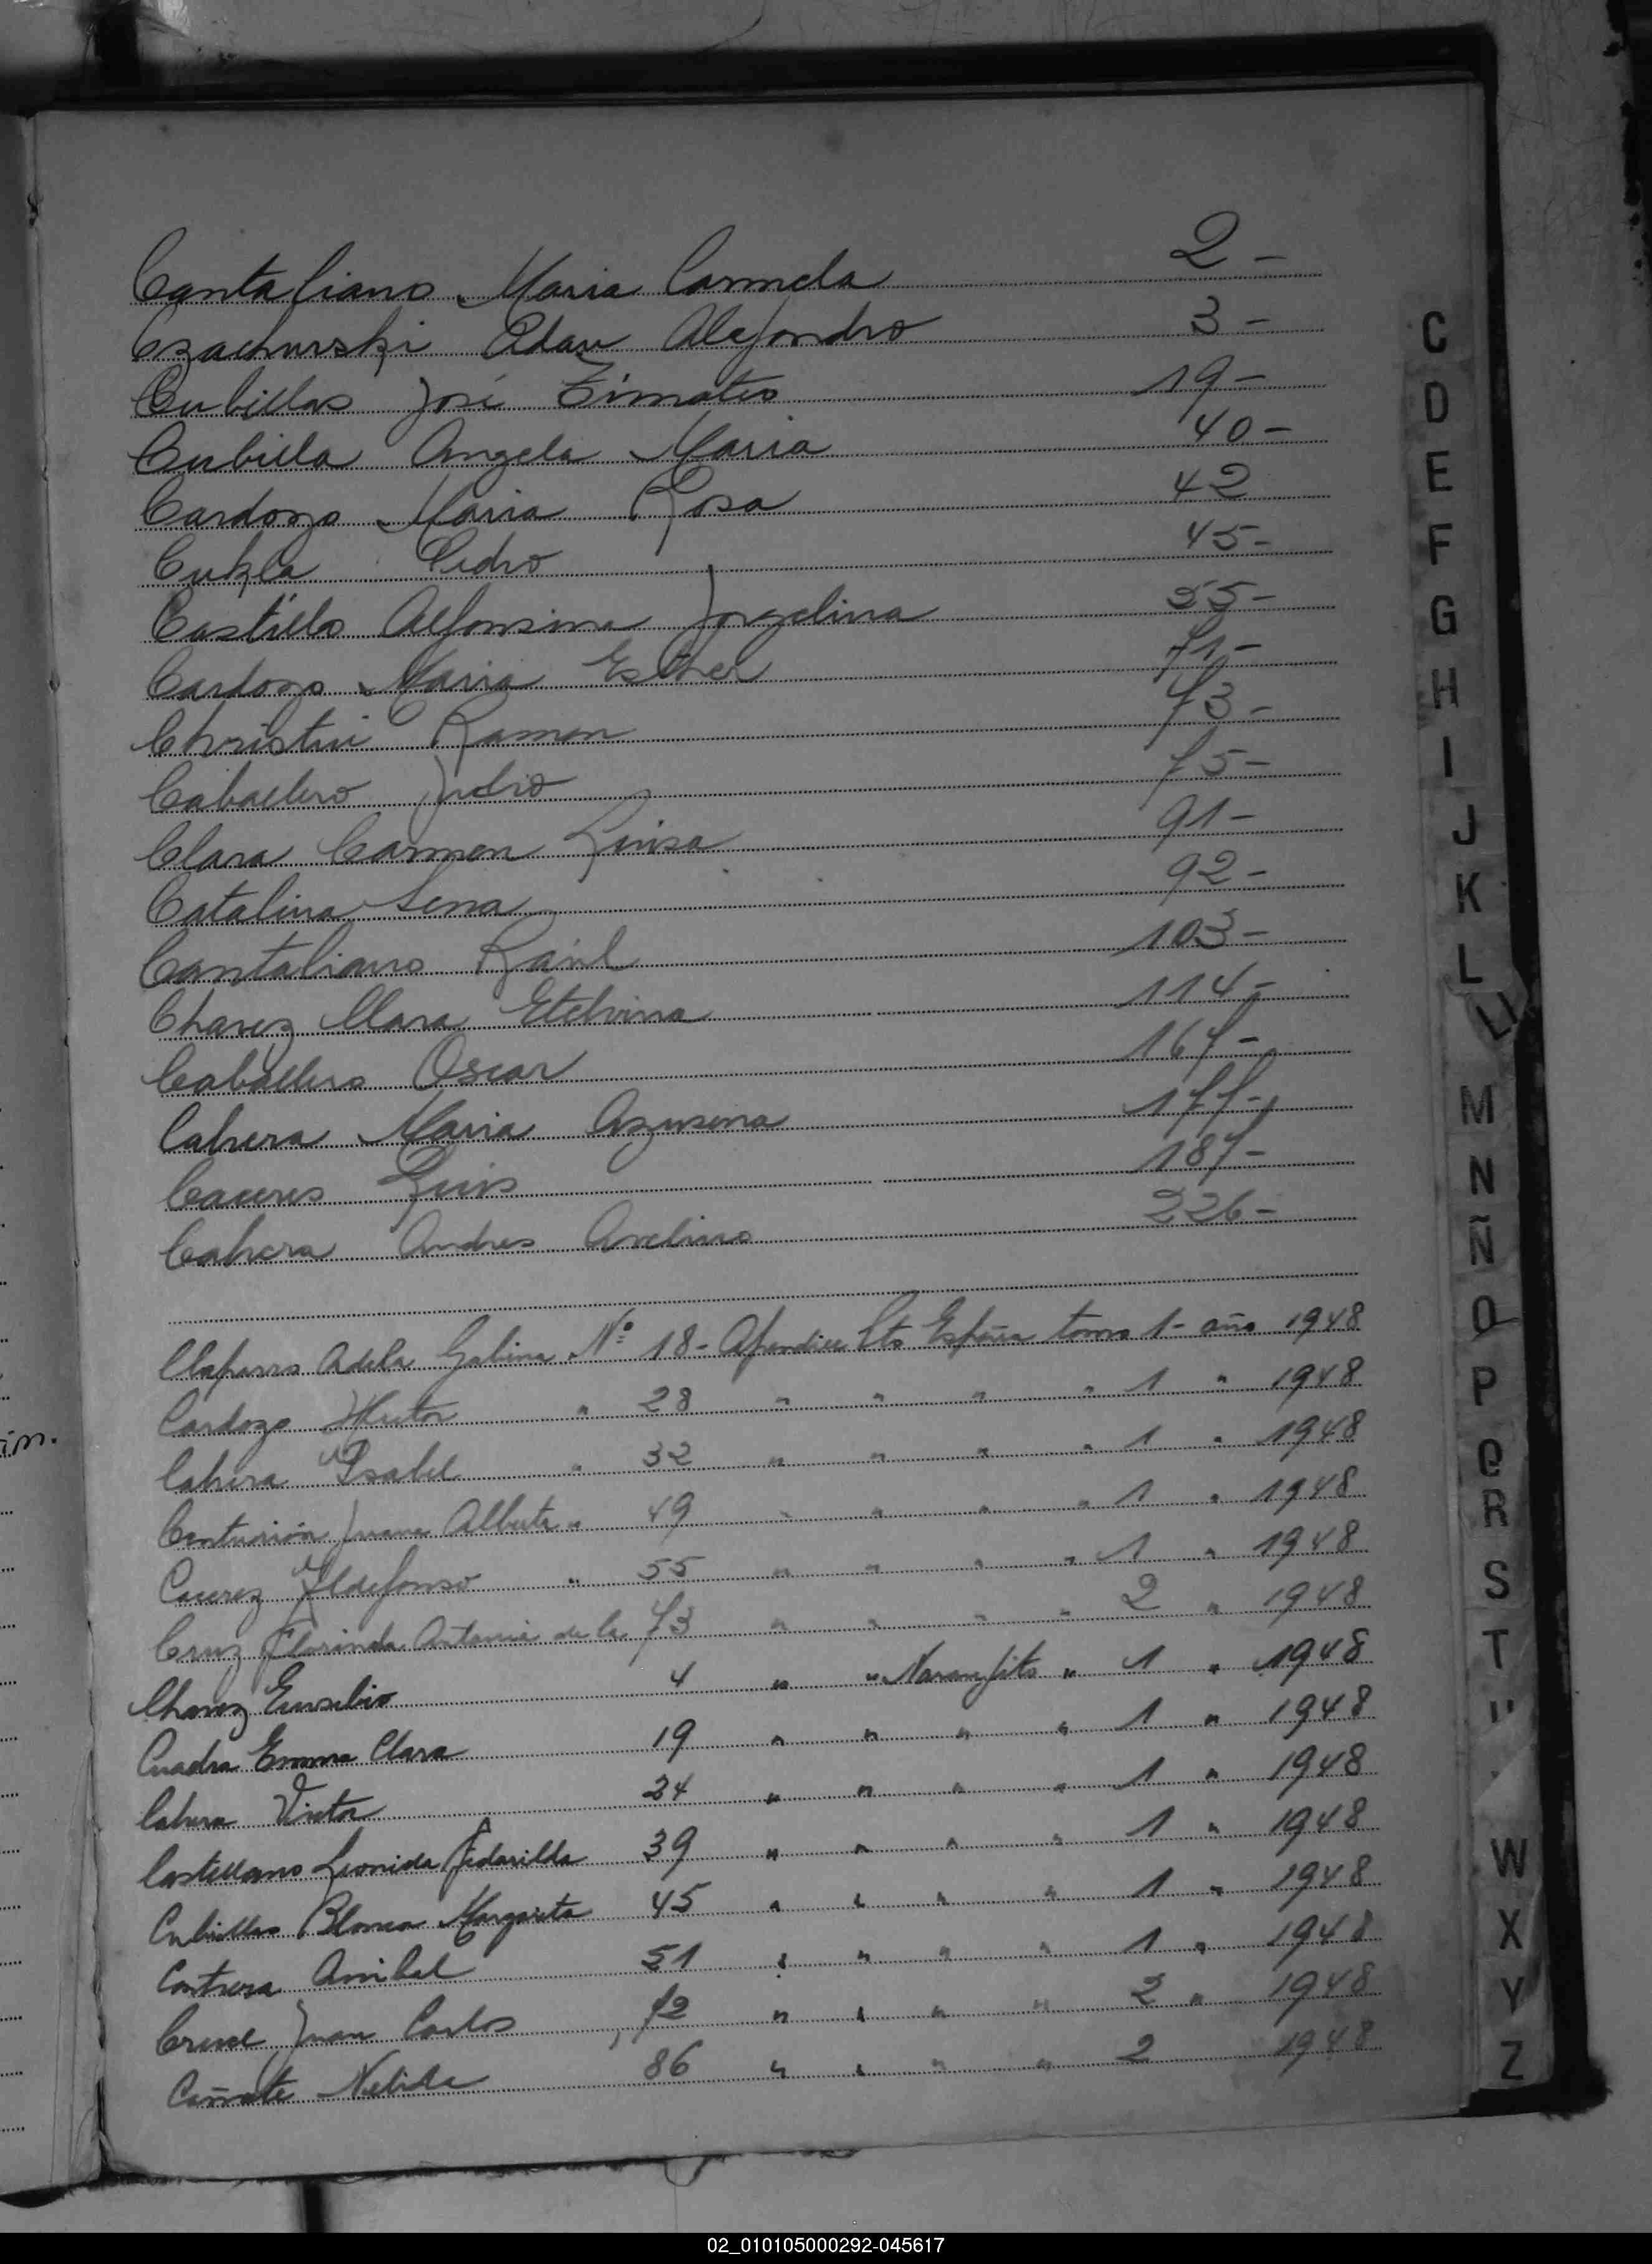 Cantaliano Maria Carmela 2-
Czachurski Adan Alejandro 3-
Cubillas José Timoteo 19-
Cubilla Angela Maria 40-
Cardozo Maria Rosa 42
Cukla Pedro 45-
Castillo Alfonsina Jorgelina 55-
Cardozo Maria Esther 71-
Christin Ramon 73-
Caballero Julio 75-
Clara Carmen Luisa 91-
Catalina Lena 92-
Cantaliano Raúl 103-
Chavez Clara Etelvina 114-
Caballero Oscar 167-
Cabrera Maria Azusena 177-
Caceres Luis 187-
Cabrera Andres Avelino 226-
Adela Gabina Nº 18- Apendice Sto España tomo 1- año 1948
Cardozo Hector " 28 " " " " 1 " 1948
Cabrera Isabel " 32 " " " " 1 " 1948
Centurión Juana Alberta " 49 " " " " 1 " 1948
Cacerez Ildefonso " 55 " " " " 1 " 1948
Cruz Florinda Antonia de la 73 " " " " 2 " 1948
Chavez Eusebio 4 " " Naranjito " 1 " 1948
Cuadra Emma Clara 19 " " " " 1 " 1948
Cabrera Victor 34 " " " " 1 " 1948
Castellano Leonida 39 " " " " 1 " 1948
Cubillas Blanca Margarita 45 " " " " 1 " 1948
Contrera Anibal 51 " " " " 1 " 1948
Juan Carlos 72 " " " " 2 " 1948
Cañete Nelida 86 " " " " 2 1948
im.
C
D
E
F
G
H
I
J
K
L
Ll
M
N
Ñ
O
P
Q
R
S
T
W
X
Y
Z
02_010105000292-045617